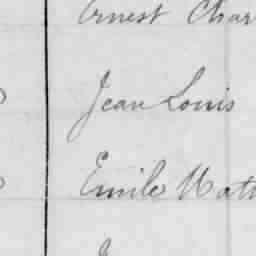 Ernest Char
Jean Louis
Emile Math